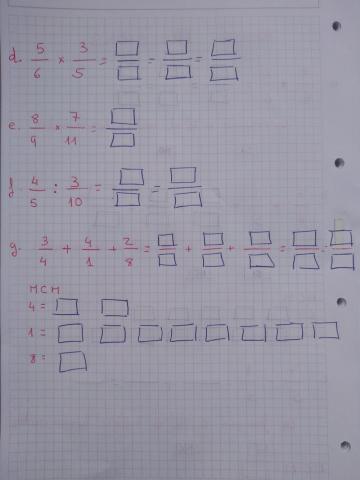 d. 5/6 × 3/5 = □/□ = □/□ = □/□
e. 8/9 × 7/11 = □/□
f. 4/5 : 3/10 = □/□ = □/□
g. 3/4 + 4/1 + 2/8 = □/□ + □/□ + □/□ = □/□ = □/□
MCM
4 = □ □
1 = □ □ □ □ □ □ □ □
8 = □